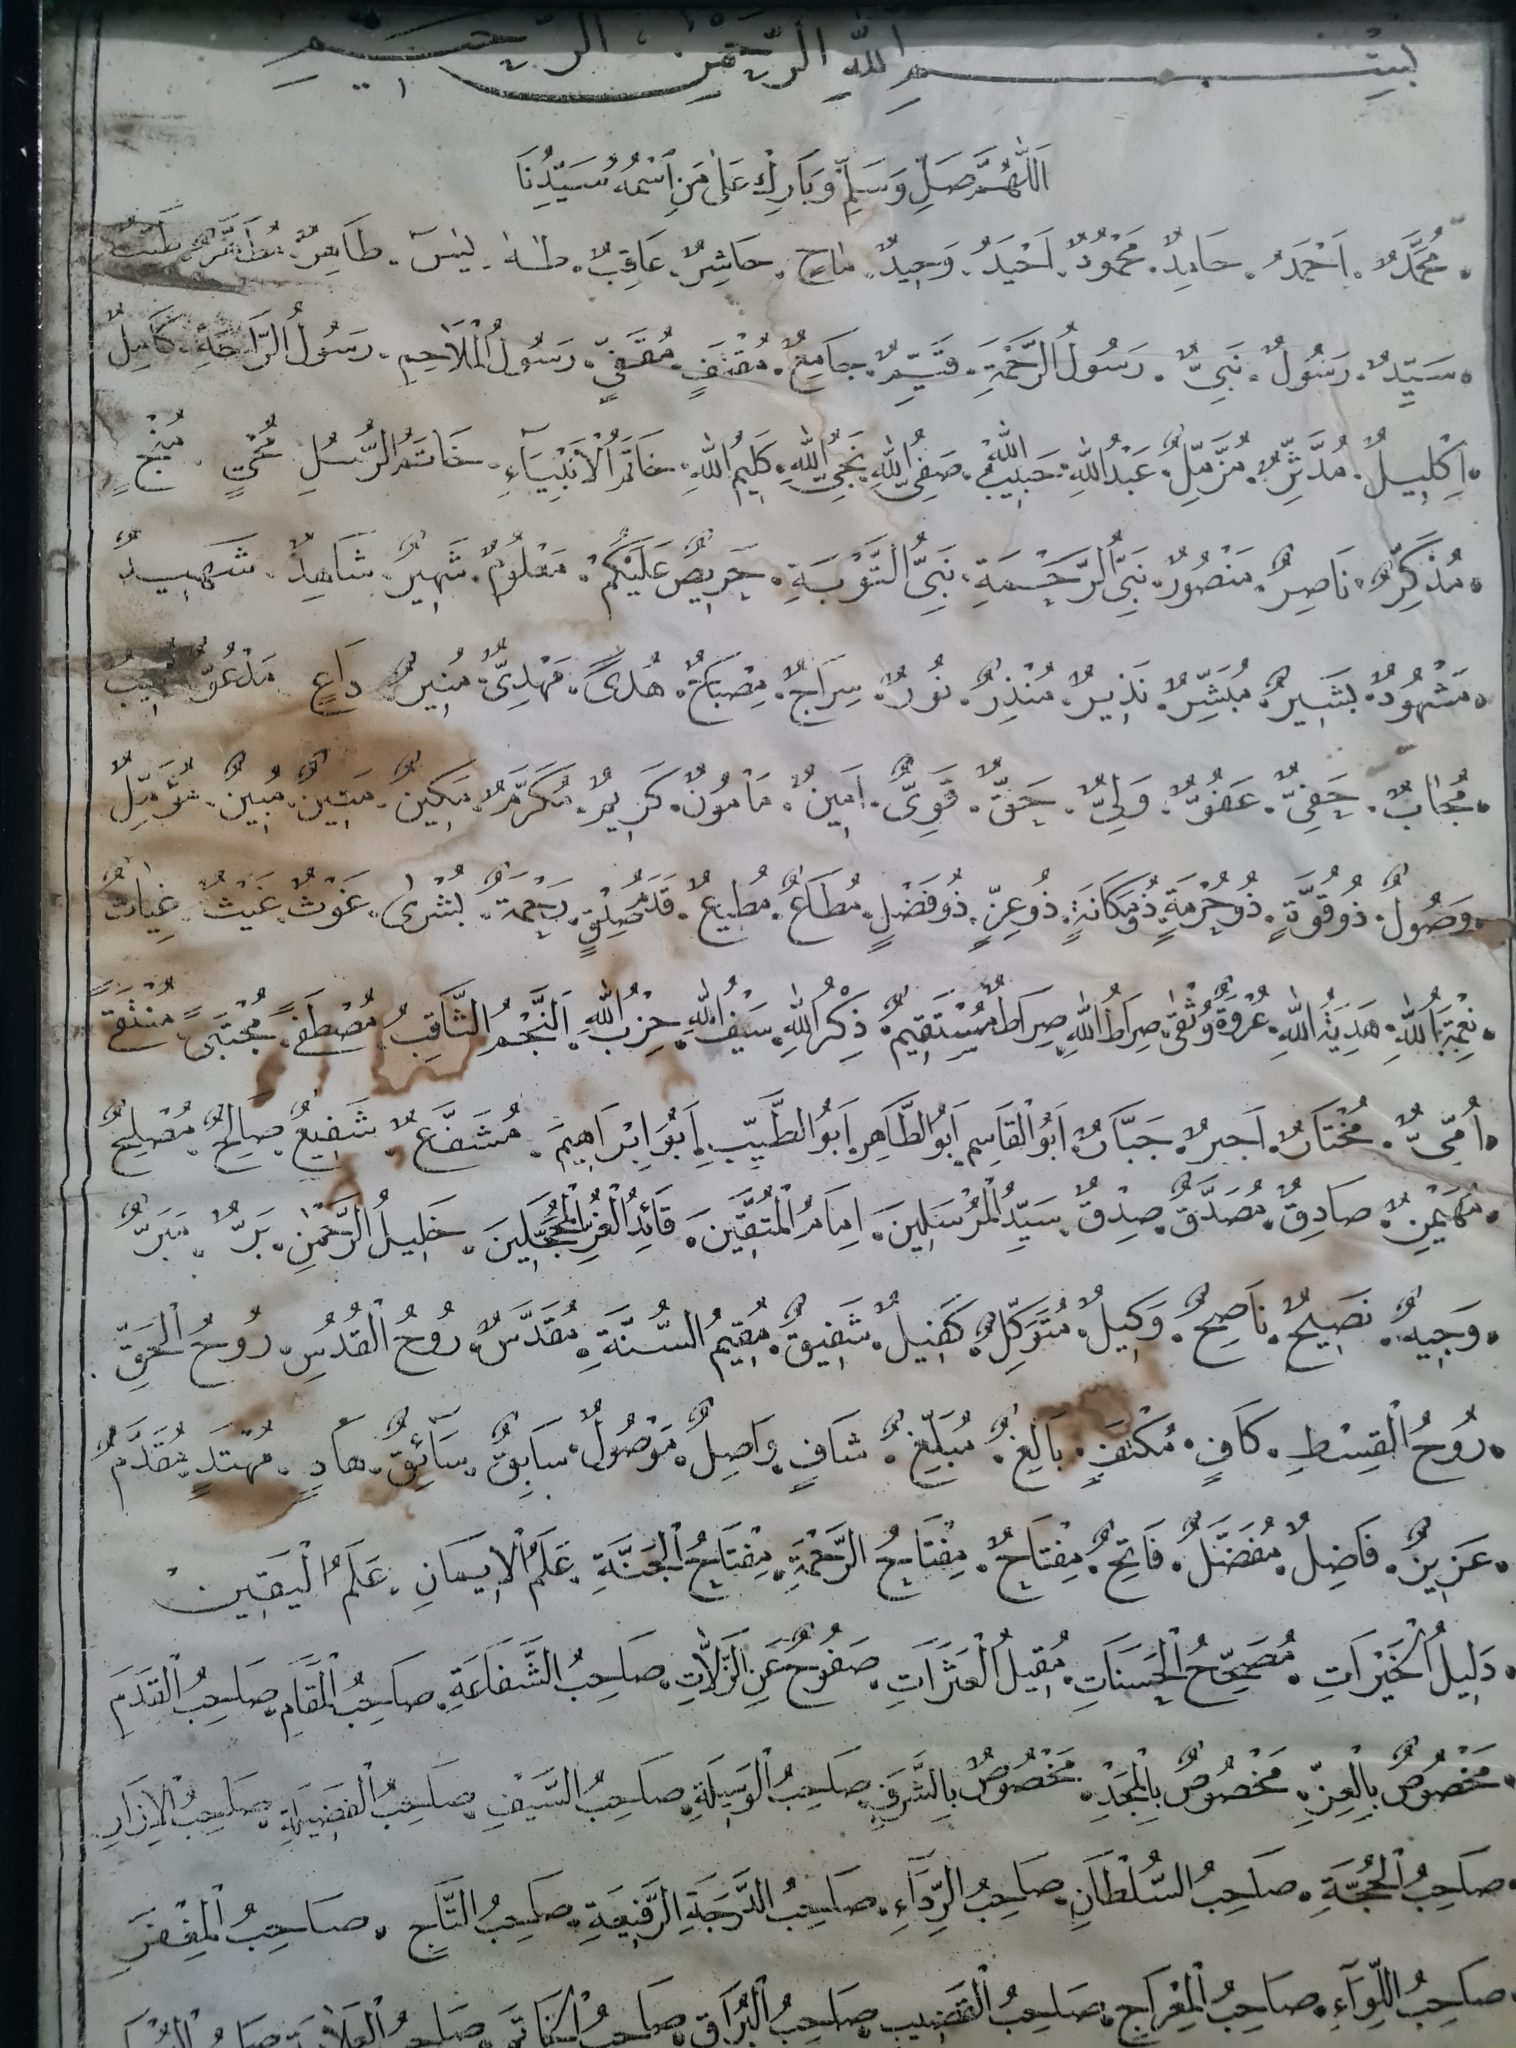 بِسْمِ اللهِ الرَّحْمٰنِ الرَّحِيْمِ
اَللّٰهُمَّ صَلِّ وَسَلِّمْ وَبَارِكْ عَلٰى مَنِ اسْمُهُ سَيِّدُنَا
مُحَمَّدٌ . اَحْمَدُ . حَامِدٌ . مَحْمُوْدٌ . اَحْيَدُ . وَحِيدٌ . مَاحٍ . حَاشِرٌ . عَاقِبٌ . طٰهٰ . يٰسٓ . طَاهِرٌ . مُطَهَّرٌ . طَيِّبٌ
سَيِّدٌ . رَسُولٌ . نَبِيٌّ . رَسُولُ الرَّحْمَةِ . قَيِّمٌ . جَامِعٌ . مُقْتَفٍ . مُقَفِّيٍ . رَسُولُ الْمَلَاحِمِ . رَسُولُ الرَّاحَةِ . كَامِلٌ
اِكْلِيلٌ . مُدَّثِّرٌ . مُزَّمِّلٌ . عَبْدُ اللهِ . حَبِيبُ اللهِ . صَفِيُّ اللهِ . نَجِيُّ اللهِ . كَلِيمُ اللهِ . خَاتَمُ الْاَنْبِيَآءِ . خَاتَمُ الرُّسُلِ مُحْيٍ . مُنْجٍ
مُذَكِّرٌ . نَاصِرٌ . مَنْصُورٌ . نَبِيُّ الرَّحْمَةِ . نَبِيُّ التَّوْبَةِ . حَرِيصٌ عَلَيْكُمْ . مَعْلُومٌ . شَهِيرٌ . شَاهِدٌ . شَهِيدٌ
مَشْهُودٌ . بَشِيرٌ . مُبَشِّرٌ . نَذِيرٌ . مُنْذِرٌ . نُورٌ . سِرَاجٌ . مِصْبَاحٌ . هُدًى . مَهْدِيٌّ . مُنِيرٌ دَاعٍ مَدْعُوٌّ مُجِيبٌ
مُجَابٌ . حَفِيٌّ . عَفُوٌّ . وَلِيٌّ . حَقٌّ . قَوِيٌّ . اَمِينٌ . مَأْمُونٌ . كَرِيمٌ . مُكَرَّمٌ . مَكِينٌ . مَتِينٌ . مُبِينٌ . مُؤَمِّلٌ
وَصُولٌ . ذُو قُوَّةٍ . ذُو حُرْمَةٍ . ذُو مَكَانَةٍ . ذُو عِزٍّ . ذُو فَضْلٍ . مُطَاعٌ . مُطِيعٌ . قَدَمُ صِدْقٍ . رَحْمَةٌ . بُشْرٰى . غَوْثٌ . غَيْثٌ . غِيَاثٌ
نِعْمَةُ اللهِ . هَدِيَةُ اللهِ . عُرْوَةٌ وُثْقٰى . صِرَاطُ اللهِ . صِرَاطٌ مُسْتَقِيمٌ . ذِكْرُ اللهِ . سَيْفُ اللهِ . حِزْبُ اللهِ . اَلنَّجْمُ الثَّاقِبُ . مُصْطَفًى . مُجْتَبًى . مُنْتَقًى
اُمِّيٌّ . مُخْتَارٌ . اَجِيرٌ . جَبَّارٌ . اَبُو الْقَاسِمِ . اَبُو الطَّاهِرِ . اَبُو الطَّيِّبِ . اَبُو اِبْرَاهِيمَ . مُشَفَّعٌ . شَفِيعٌ . صَالِحٌ . مُصْلِحٌ
مُهَيْمِنٌ . صَادِقٌ . مُصَدَّقٌ . صِدْقٌ . سَيِّدُ الْمُرْسَلِينَ . اِمَامُ الْمُتَّقِينَ . قَائِدُ الْغُرِّ الْمُحَجَّلِينَ . خَلِيلُ الرَّحْمٰنِ . بَرٌّ . مَبَرٌّ
وَجِيهٌ . نَصِيحٌ . نَاصِحٌ . وَكِيلٌ . مُتَوَكِّلٌ . كَفِيلٌ . شَفِيقٌ . مُقِيمُ السُّنَّةِ . مُقَدَّسٌ . رُوحُ الْقُدُسِ . رُوحُ الْحَقِّ .
رُوحُ الْقِسْطِ . كَافٍ . مُكْتَفٍ . بَالِغٌ . مُبَلِّغٌ . شَافٍ . وَاصِلٌ . مَوْصُولٌ . سَابِقٌ . سَآئِقٌ . هَادٍ . مُهْتَدٍ . مُقَدَّمٌ
عَزِيزٌ . فَاضِلٌ . مُفَضَّلٌ . فَاتِحٌ . مِفْتَاحٌ . مِفْتَاحُ الرَّحْمَةِ . مِفْتَاحُ الْجَنَّةِ . عَلَمُ الْاِيمَانِ . عَلَمُ الْيَقِينِ
دَلِيلُ الْخَيْرَاتِ . مُصَحِّحُ الْحَسَنَاتِ . مُقِيلُ الْعَثَرَاتِ . صَفُوحٌ عَنِ الزَّلَّاتِ . صَاحِبُ الشَّفَاعَةِ . صَاحِبُ الْمَقَامِ . صَاحِبُ الْقَدَمِ
مَخْصُوصٌ بِالْعِزِّ . مَخْصُوصٌ بِالْمَجْدِ . مَخْصُوصٌ بِالشَّرَفِ . صَاحِبُ الْوَسِيلَةِ . صَاحِبُ السَّيْفِ . صَاحِبُ الْفَضِيلَةِ . صَاحِبُ الْاِزَارِ
صَاحِبُ الْحُجَّةِ . صَاحِبُ السُّلْطَانِ . صَاحِبُ الرِّدَآءِ . صَاحِبُ الدَّرَجَةِ الرَّفِيعَةِ . صَاحِبُ التَّاجِ . صَاحِبُ الْمِغْفَرِ
صَاحِبُ اللِّوَآءِ . صَاحِبُ الْمِعْرَاجِ . صَاحِبُ الْقَضِيبِ . صَاحِبُ الْبُرَاقِ . صَاحِبُ الْخَاتَمِ . صَاحِبُ الْعَلَامَةِ